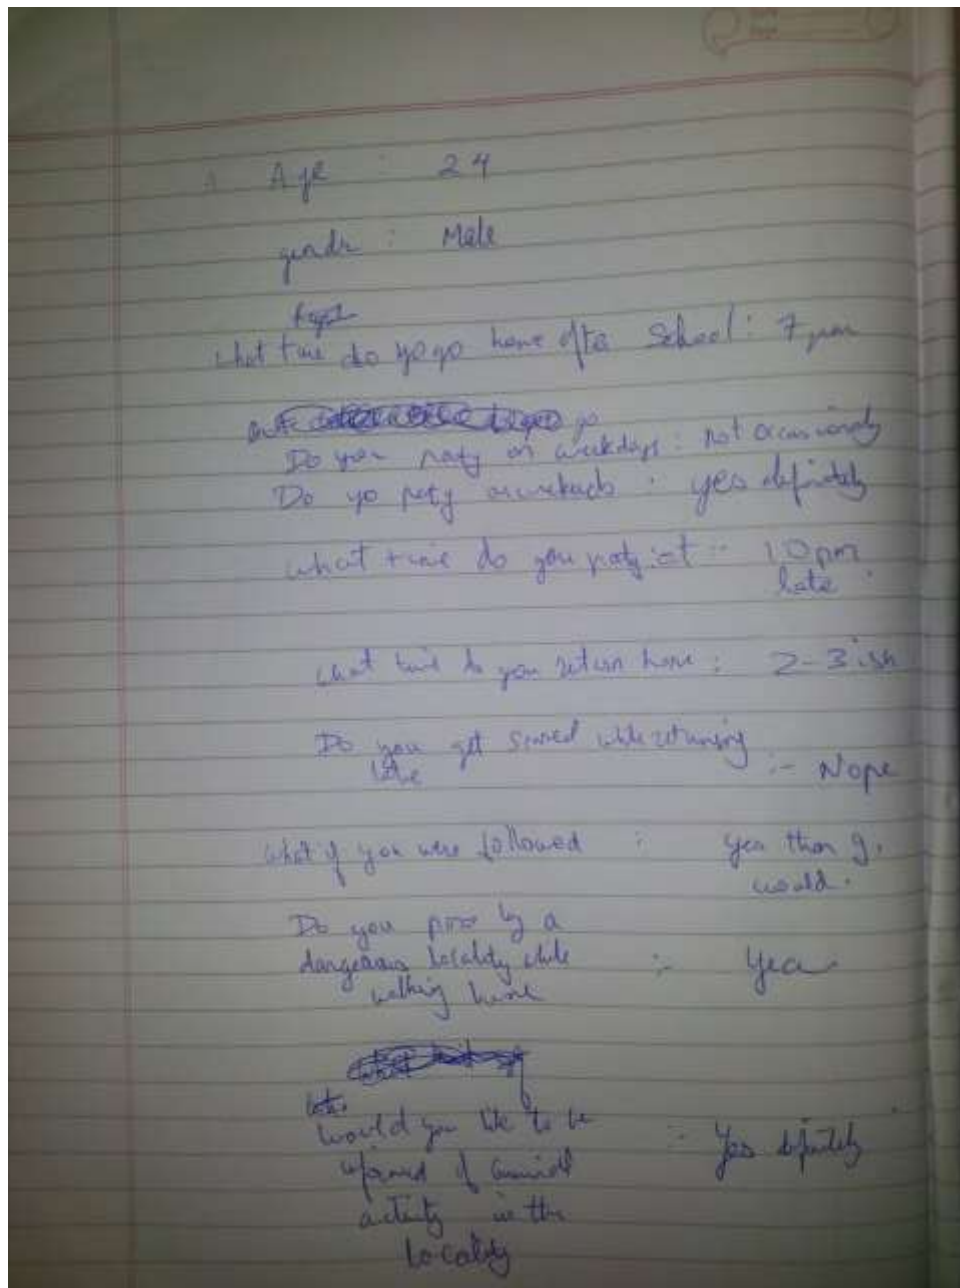 Age : 24
gender : Male
what time do yo go home after School : 7 pm
go
Do you party on weekdays : not occasionally
Do yo party on weekends : yes definitely
what time do you party at :- 10 pm
late
what time do you return home : 2-3 ish
Do you get scared while returning
late :- Nope
what if you were followed : yea than I
would.
Do you pass by a
dangerous locality while :- Yea
walking home
would you like to be
informed of criminal :- Yes definitely
activity in the
locality